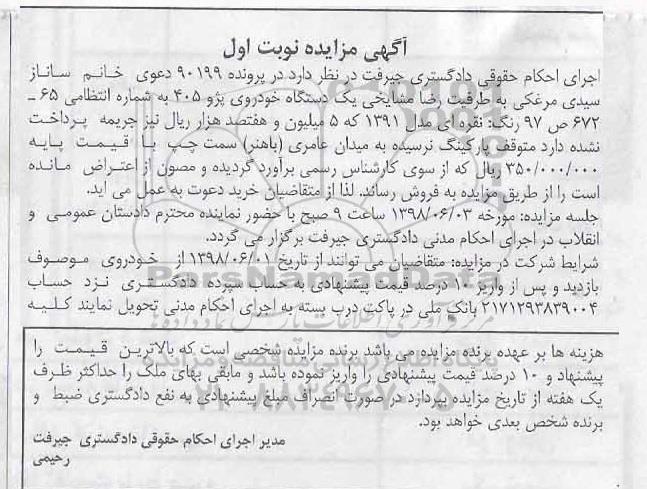 آگهی مزایده نوبت اول
اجرای احکام حقوقی دادگستری جیرفت در نظر دارد در پرونده ۹۰۱۹۹ دعوی خانم ساناز
سیدی مرغکی به طرفیت رضا مشایخی یک دستگاه خودروی پژو ۴۰۵ به شماره انتظامی ۶۵ ـ
۶۷۲ ص ۹۷ رنگ: نقره ای مدل ۱۳۹۱ که ۵ میلیون و هفتصد هزار ریال نیز جریمه پرداخت
نشده دارد متوقف پارکینگ نرسیده به میدان عامری (باهنر) سمت چپ با قیمت پایه
۳۵۰/۰۰۰/۰۰۰ ریال که از سوی کارشناس رسمی برآورد گردیده و مصون از اعتراض مانده
است را از طریق مزایده به فروش رساند. لذا از متقاضیان خرید دعوت به عمل می آید.
جلسه مزایده: مورخه ۱۳۹۸/۰۶/۰۳ ساعت ۹ صبح با حضور نماینده محترم دادستان عمومی و
انقلاب در اجرای احکام مدنی دادگستری جیرفت برگزار می گردد.
شرایط شرکت در مزایده: متقاضیان می توانند از تاریخ ۱۳۹۸/۰۶/۰۱ از خودروی موصوف
بازدید و پس از واریز ۱۰ درصد قیمت پیشنهادی به حساب سپرده دادگستری نزد حساب
۲۱۷۱۲۹۳۸۳۹۰۰۴ بانک ملی در پاکت درب بسته به اجرای احکام مدنی تحویل نمایند کلیه
هزینه ها بر عهده برنده مزایده می باشد برنده مزایده شخصی است که بالاترین قیمت را
پیشنهاد و ۱۰ درصد قیمت پیشنهادی را واریز نموده باشد و مابقی بهای ملک را حداکثر ظرف
یک هفته از تاریخ مزایده بپردازد در صورت انصراف مبلغ پیشنهادی به نفع دادگستری ضبط و
برنده شخص بعدی خواهد بود.
مدیر اجرای احکام حقوقی دادگستری جیرفت
رحیمی
ParsNamadData